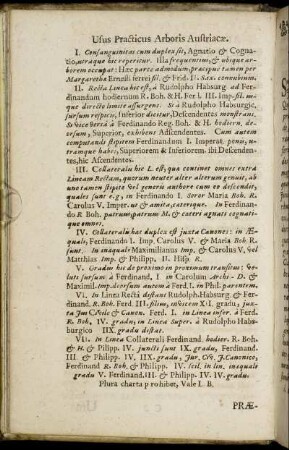 Usus Practicus Arboris Austriacæ.
I. Consanguinitas cum duplex sit, Agnatio & Cogna-
tio, utraque hic reperitur. Illa frequentius, & ubique ar-
borem occupat: Hæc parce admodum, præcipue tamen per
Margaretha Ernesti ferrei fil. & Frid. II. Sax. connubium.
II. Recta Linea hic est, à Rudolpho Habsurg ad Fer-
dinandum hodiernum R. Boh. & H. Fer I. III. Imp. fil. mi-
que directo limite assurgens. Si à Rudolpho Habsurgic,
sursum respicis, Inferior dicitur, Descendentes monstrans,
& vice versâ à Ferdinando Reg. Boh. & H. hodierno, de-
orsum, Superior, exhibens Adscendentes. Cum autem
computandi stipitem Ferdinandum I. Imperat. ponis, u-
tramque habes, Superiorem & Inferiorem, ibi Descenden-
tes, hic Ascendentes.
III. Collateralis hîc L. est, quæ continet omnes extra
Lineam Rectam, quorum neuter alter alterum genuit, ab
uno tamen stipite vel generis authore cum eo descendit,
quales sunt e.g. in Ferdinando I. soror Maria Boh. R.
Carolus V. Imper. ut & amita, cæterique. In Ferdinan-
do R Boh. patruus, patruus M. & cæteri agnati cognati-
que omnes.
IV. Collateralis hæc duplex est juxta Canones: in Æ-
quali, Ferdinando I. Imp. Carolus V. & Maria Boh. R.
sunt. In inæquali Maximilianus Imp. & Carolus V, vel
Matthias Imp. & Philipp. II. Hisp. R.
V. Gradus hîc de proximo in proximum transitus: Ve-
luti sursum à Ferdinand. I. in Carolum Arch.-D. &
Maximil. Imp. deorsum autem à Ferd. I. in Phil. parentem.
VI. In Linea Rectâ distant Rudolph. Habsurg. & Ferdi-
nand. R. Boh. Ferd. III. Imp. fil. invicem XII. gradu, jux-
ta Jus Civile & Canon. Ferd. I. in Linea infer. à Ferd.
R. Boh. IV. gradu, in Linea Super. à Rudolpho Habs-
burgico IIX. gradu distat.
VII. In Linea Collaterali Ferdinand. hodier. R. Boh.
& H. & Pilipp. IV. juncti sunt IX. gradu, Ferdinand.
III. & Philipp. IV. IIX. gradu, Jur. Civ. J. Canonico,
Ferdinand R. Boh. & Philipp. IV. scil. in lin. inæquale
gradu V. Ferdinand. III. & Philipp. IV. IV. gradu.
Plura charta prohibet, Vale L. B.
PRÆ-